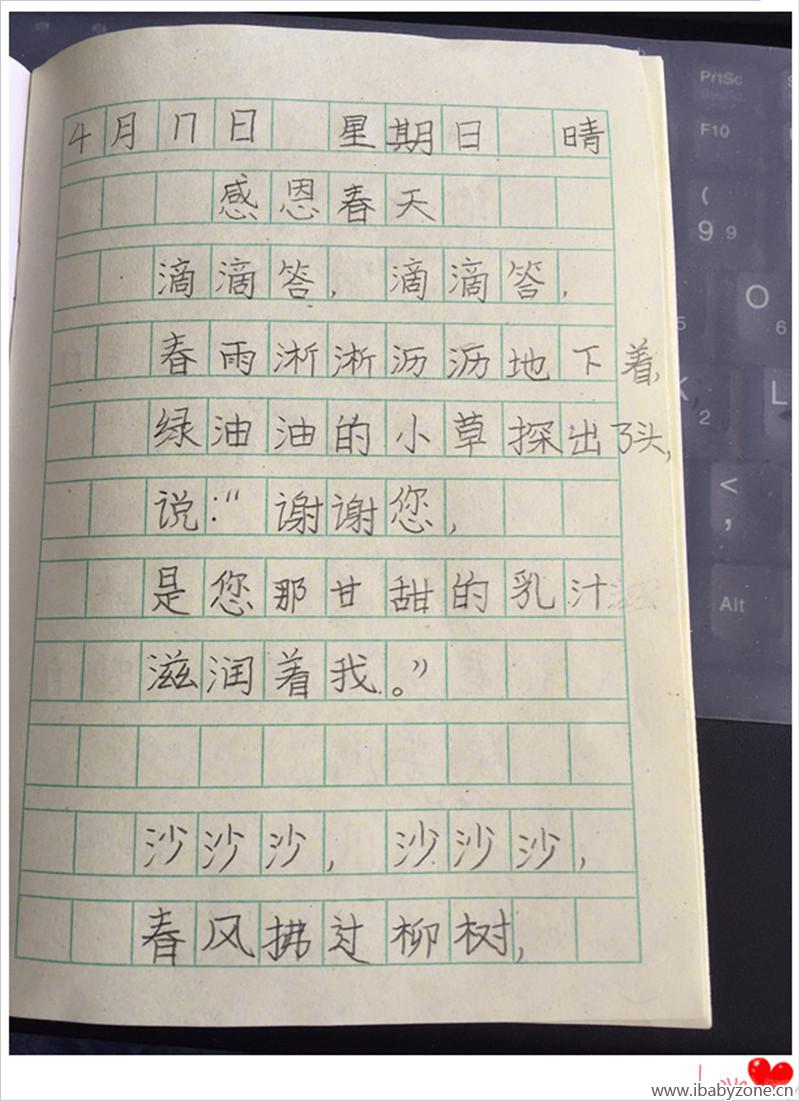 4月17日 星期日 晴
感恩春天
滴滴答，滴滴答，
春雨淅淅沥沥地下着，
绿油油的小草探出了头，
说：“谢谢您，
是您那甘甜的乳汁
滋润着我。”
沙沙沙，沙沙沙，
春风拂过柳树，
PrtSc
F10
(
9 9
O
6
5
K
2
L
<
,
Alt
www.ibabyzone.cn